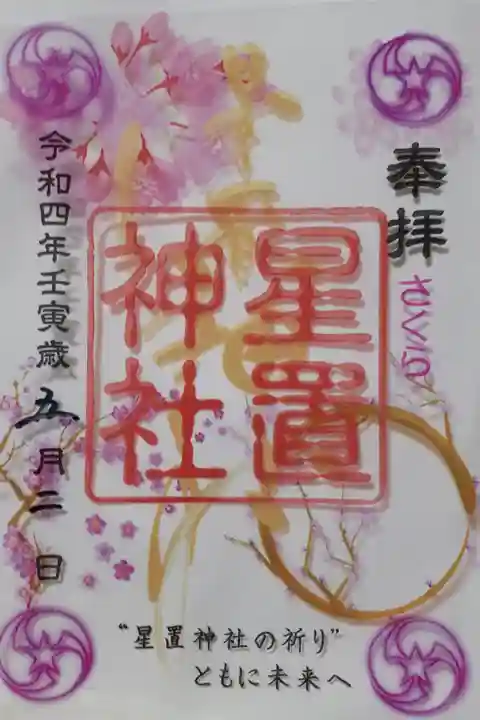 奉拝
さくら
星置
神社
令和四年壬寅歳五月二日
“星置神社の祈り”
ともに未来へ